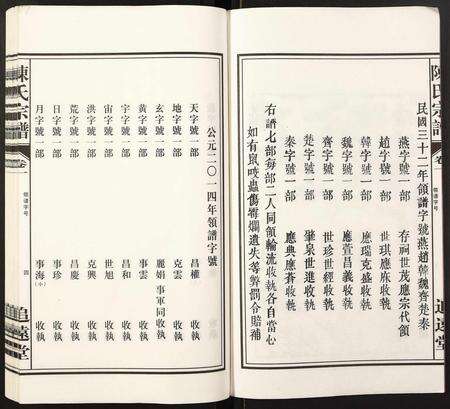 陳氏宗譜
卷一
領譜字號
追遠堂
民國三十二年領譜字號燕趙韓魏齊楚秦
燕字號一部 存嗣世茂應宗代領
趙字號一部 世琪應庥收執
韓字號一部 應瑞克盛收執
魏字號一部 應喜昌義收執
齊字號一部 世珍世經收執
楚字號一部 肇泉世進收執
秦字號一部 應典應蒼收執
右譜七部每部二人同領輪流收執各自當心
如有鼠咬蟲傷霉爛遺失等弊罰令賠補
公元二〇一四年領譜字號
天字號一部 昌權 收執
地字號一部 克雲 收執
玄字號一部 麗娟 事軍同收執
黃字號一部 事雲 收執
宇字號一部 昌和 收執
宙字號一部 世旭 收執
洪字號一部 克興 收執
荒字號一部 昌慶 收執
日字號一部 事珍 收執
月字號一部 事海(小) 收執
陳氏宗譜
卷一
領譜字號
四
追遠堂